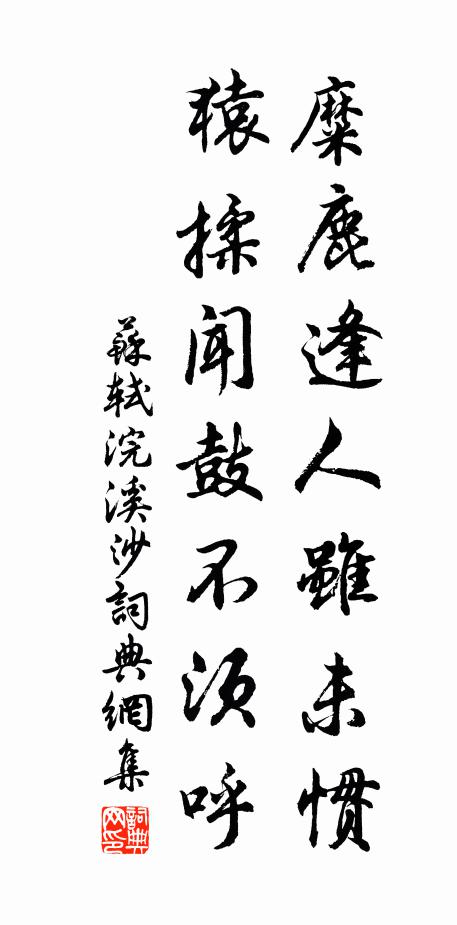 麋鹿逢人雖未慣
猿揉聞鼓不須呼
蘇軾浣溪沙詞典網集
詞典网印